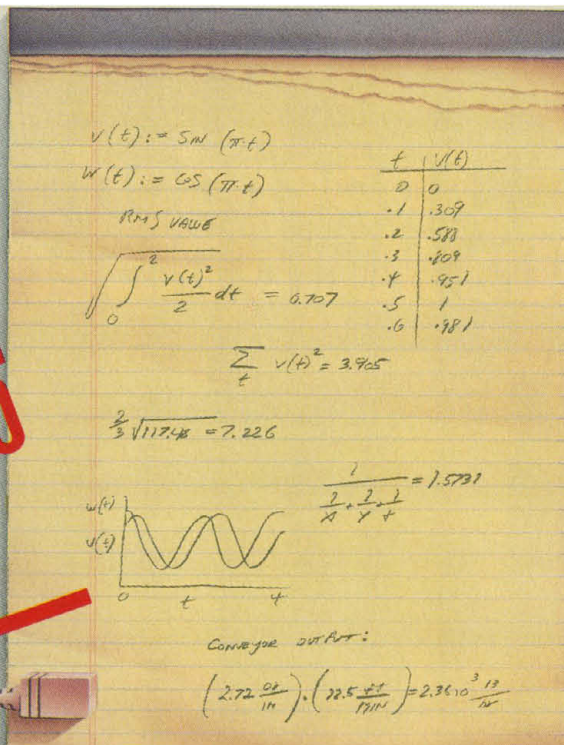 v(t) := SIN (π·t)
w(t) := COS (π·t)
RMS VALUE
√ ∫₀² v(t)²/2 dt = 0.707
t | v(t)
0 | 0
.1 | .309
.2 | .588
.3 | .809
.4 | .951
.5 | 1
.6 | .981
∑ₜ v(t)² = 3.905
2/3 √117.48 = 7.226
= 1.5731
w(t)
v(t)
0 t 4
CONVEYOR OUTPUT:
(2.72 oz/in)·( FT/MIN) = 2.36 10³